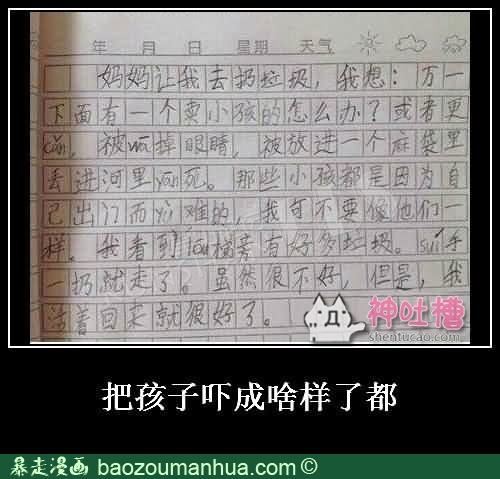 年 月 日 星期 天气
妈妈让我去扔垃圾,我想:万一
下面有一个卖小孩的怎么办?或者更
cǎn,被wā掉眼睛,被放进一个麻袋里
丢进河里yān死。那些小孩都是因为自
己出门而yù难的,我可不要像他们一
样。我看到lóu梯旁有好多垃圾。suí手
一扔就走了。虽然很不好,但是,我
活着回来就很好了。
神吐槽
shentucao.com
把孩子吓成啥样了都
暴走漫画 baozoumanhua.com ©